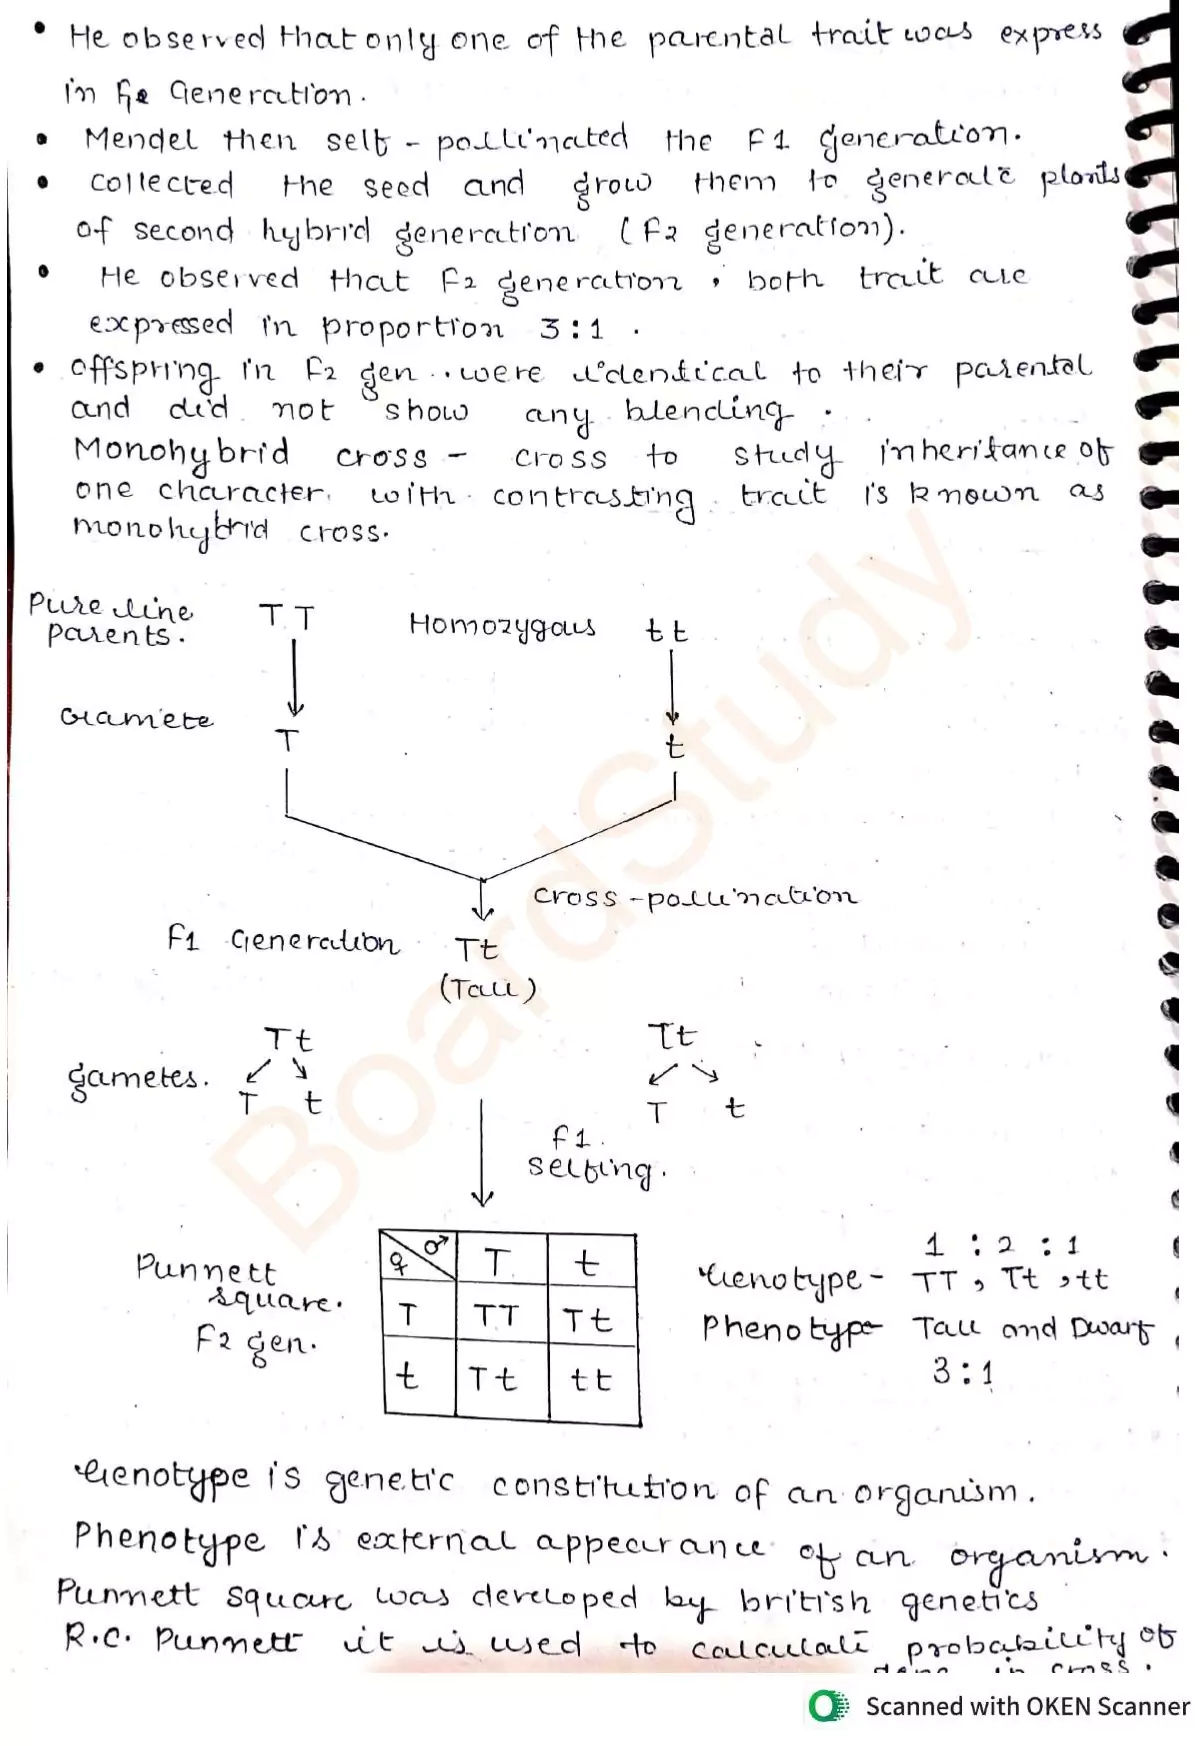 • He observed that only one of the parental trait was express
in Generation.
• Mendel then self - pollinated the F1 generation.
• collected the seed and grow them to generate plants
of second hybrid generation (F2 generation).
• He observed that F2 generation , both trait are
expressed in proportion 3:1 .
• Offspring in F2 gen . were identical to their parental
and did not show any blending .
Monohybrid cross - cross to study inheritance of
one character with contrasting trait is known as
monohybrid cross.
Pure line TT Homozygous tt
parents.
Gamete T t
cross-pollination
F1 Generation Tt
(Tall)
Tt Tt
gametes. T t T t
F1.
selfing.
♀ ♂ T t
T TT Tt
t Tt tt
Punnett
square.
F2 gen.
1 : 2 : 1
Genotype - TT , Tt , tt
Phenotype Tall and Dwarf
3:1
Genotype is genetic constitution of an organism.
Phenotype is external appearance of an organism.
Punnett square was developed by british genetics
R.C. Punnett it is used to calculate probability of
in cross.
BoardStudy
Scanned with OKEN Scanner